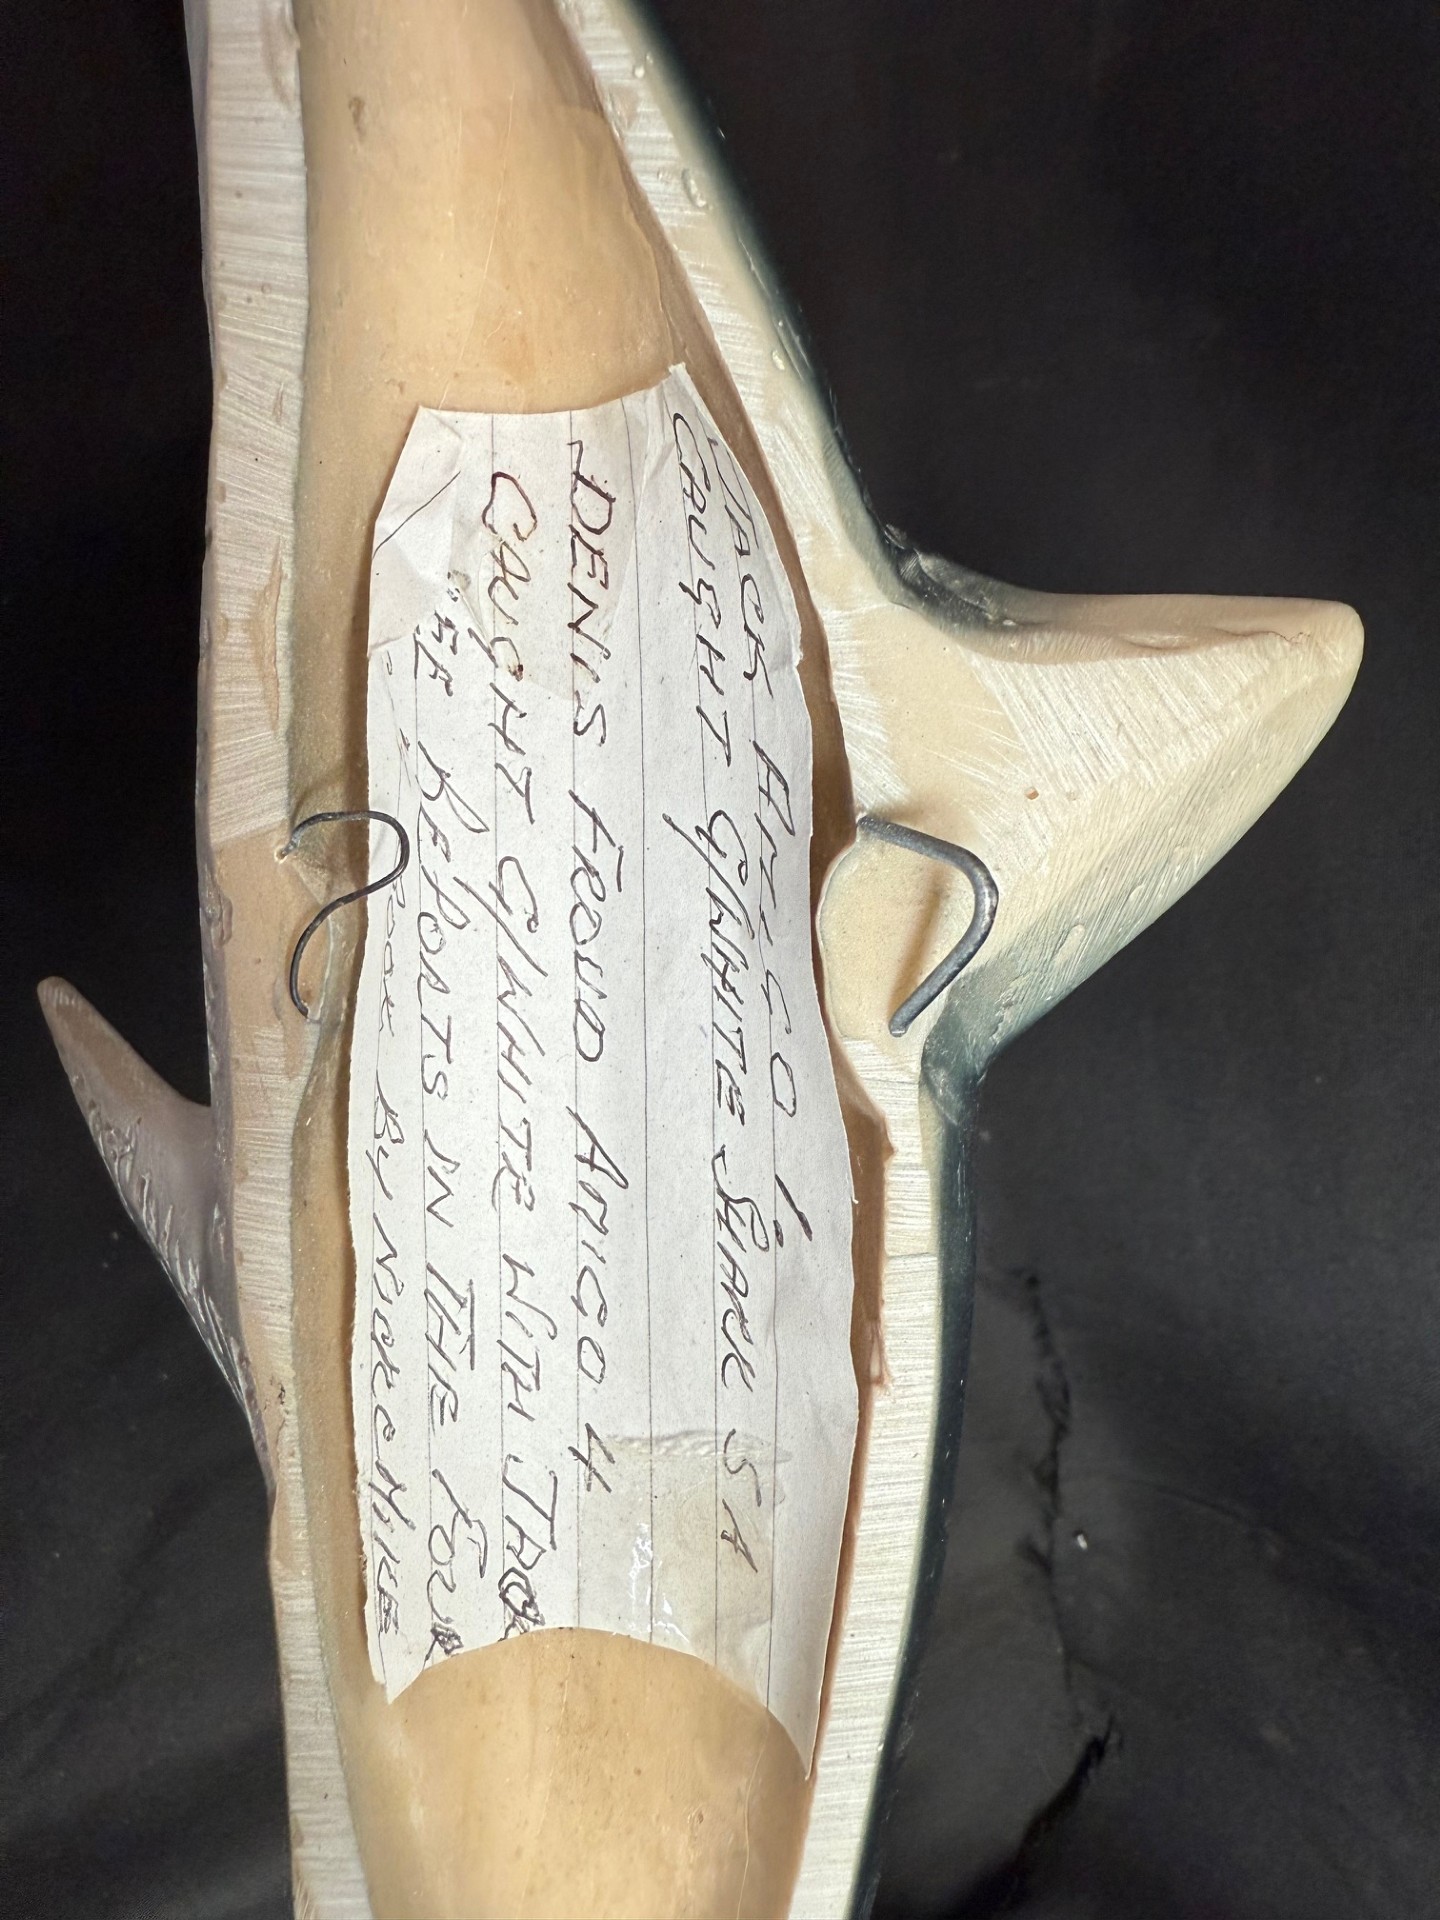 JACK AMIGO 1.
CAUGHT G/WHITE SHARK SA
DENIS FROUD AMIGO 4
CAUGHT G/WHITE WITH JACK
REPORTS IN THE FOUR
BOOK BY MIKE